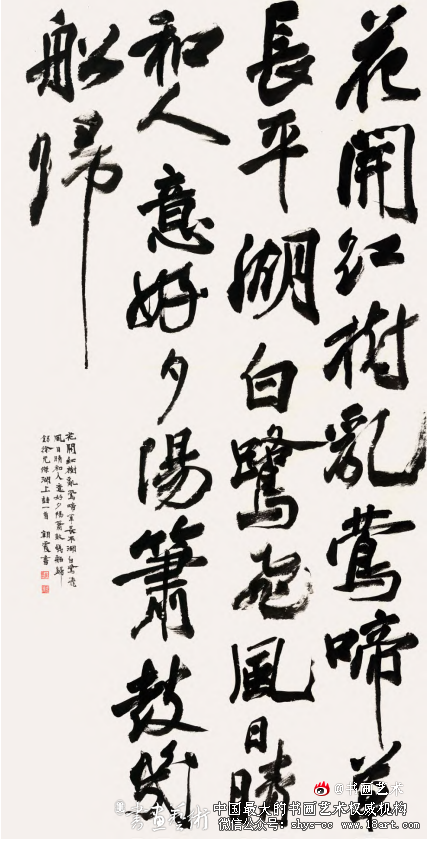 花開紅樹亂鶯啼草
長平湖白鷺飛風日晴
和人意好夕陽簫鼓幾
船歸
花開紅樹亂鶯啼草長平湖白鷺飛
風日晴和人意好夕陽簫鼓幾船歸
錄徐元傑湖上詩一首 書
@书画艺术
書畫藝術
中国最大的书画艺术权威机构
微信公众号：shys-cc www.18art.com